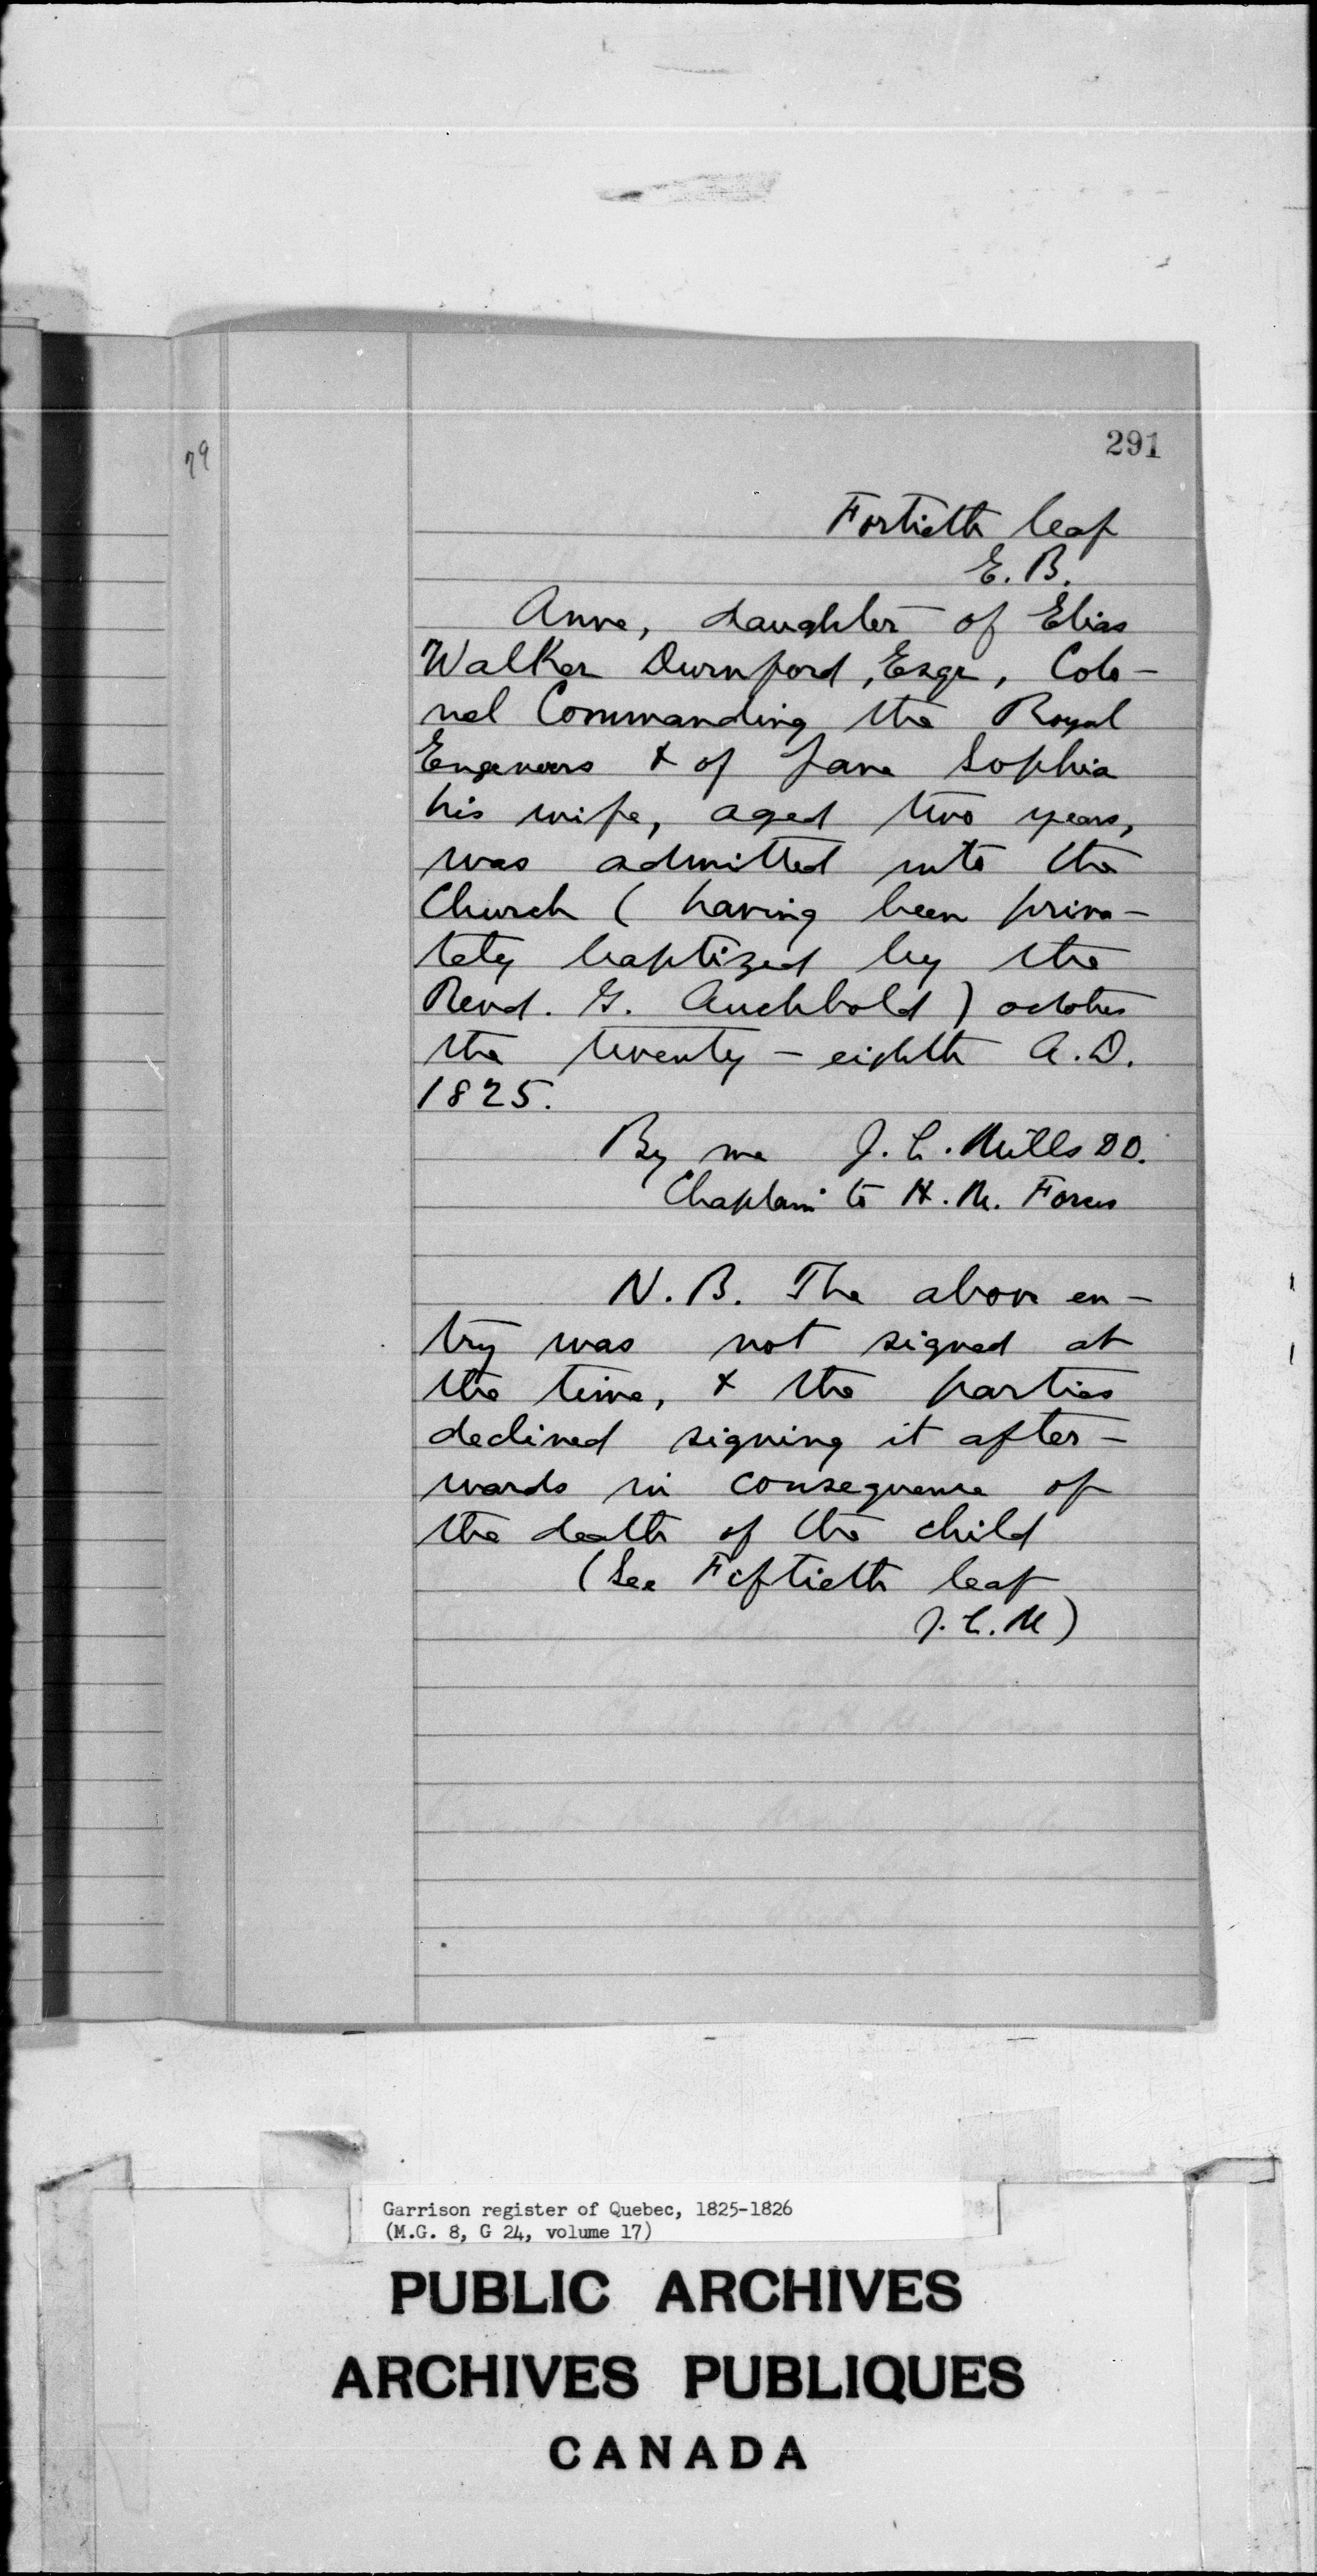 79
291
Fortieth leaf
E. B.
Anne, daughter of Elias
Walker Durnford, Esqr, Colo-
nel Commanding the Royal
Engineers & of Jane Sophia
his wife, aged two years,
was admitted into the
Church ( having been priva-
tely baptized by the
Revd. G. Auchbold ) october
the twenty-eighth A.D.
1825.
By me J. L. Mills DD.
Chaplain to H. M. Forces
N. B. The above en-
try was not signed at
the time, & the parties
declined signing it after-
wards in consequence of
the death of the child
(See Fiftieth leaf
J. L. M)
Garrison register of Quebec, 1825-1826
(M.G. 8, G 24, volume 17)
PUBLIC ARCHIVES
ARCHIVES PUBLIQUES
CANADA